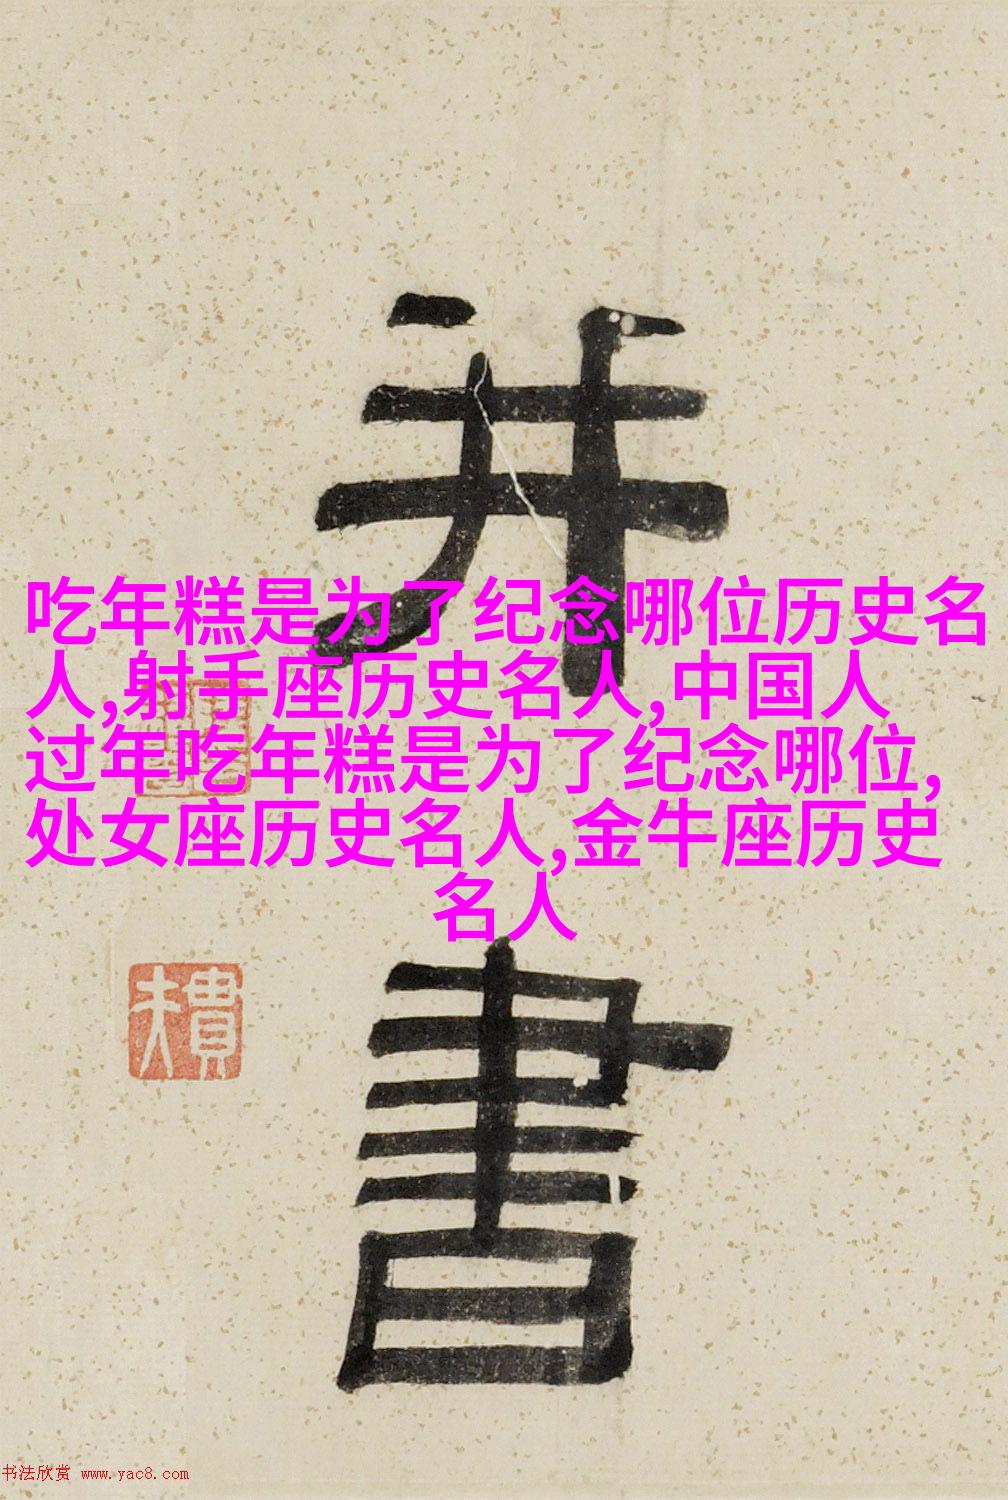 并
吃年糕是为了纪念哪位历史名
人,射手座历史名人,中国人
过年吃年糕是为了纪念哪位,
处女座历史名人,金牛座历史
名人
書
书法欣赏 www.yac8.com